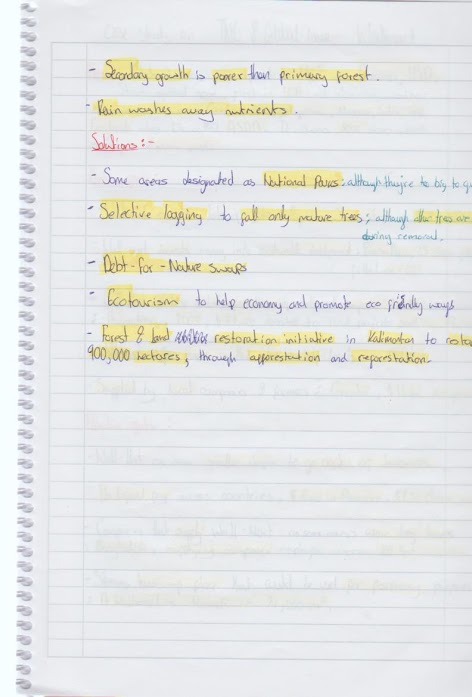 - Secondary growth is poorer than primary forest.
- Rain washes away nutrients.
Solutions:-
- Some areas designated as National Parks; although they're to big to
- Selective logging to fall only mature trees; although other trees are
during removal.
- Debt-for-Nature swaps
- Ecotourism to help economy and promote eco friendly ways
- Forest & land restoration initiative in Kalimantan to
900,000 hectares, through afforestation and reforestation.